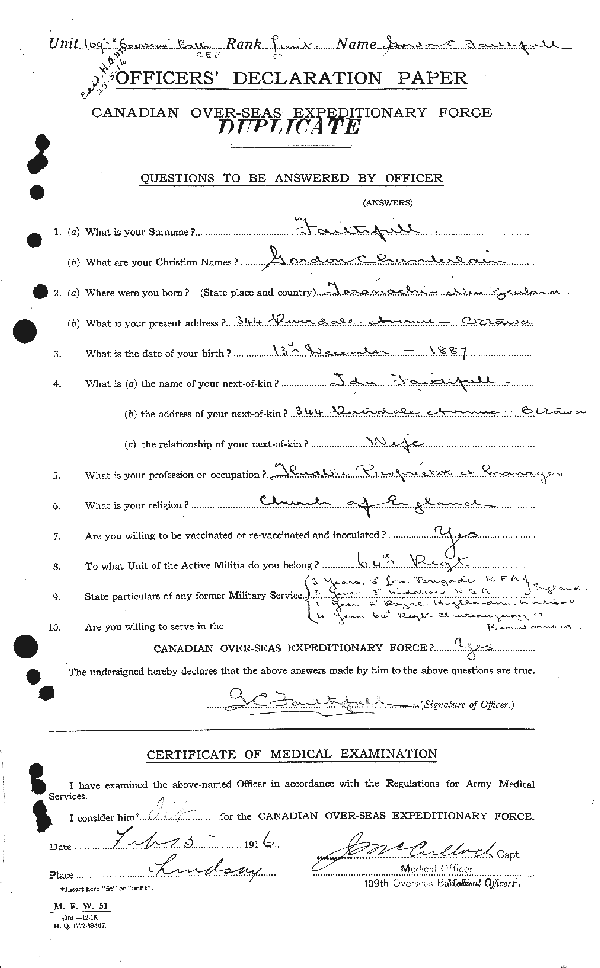 Unit 109th Overseas Batt. Rank Lieut. Name Gordon C Faithfull
C.E.F.
OFFICERS' DECLARATION PAPER
CANADIAN OVER-SEAS EXPEDITIONARY FORCE
DUPLICATE
QUESTIONS TO BE ANSWERED BY OFFICER
(ANSWERS)
1. (a) What is your Surname? Faithfull
(b) What are your Christian Names? Gordon Chamberlain
2. (a) Where were you born? (State place and country) New Zealand
(b) What is your present address? 344 Avenue - Ottawa
3. What is the date of your birth? 13th December - 1887
4. What is (a) the name of your next-of-kin? Ida Faithfull -
(b) the address of your next-of-kin? 344 Avenue Ottawa
(c) the relationship of your next-of-kin? Wife
5. What is your profession or occupation? Theatre Proprietor & Manager
6. What is your religion? Church of England
7. Are you willing to be vaccinated or re-vaccinated and inoculated? Yes
8. To what Unit of the Active Militia do you belong? 64th Regt
9. State particulars of any former Military Service. 3 Years, Brigade R.F.A. England
10. Are you willing to serve in the
CANADIAN OVER-SEAS EXPEDITIONARY FORCE? Yes
The undersigned hereby declares that the above answers made by him to the above questions are true.
G C Faithfull (Signature of Officer.)
CERTIFICATE OF MEDICAL EXAMINATION
I have examined the above-named Officer in accordance with the Regulations for Army Medical
Services.
I consider him* fit for the CANADIAN OVER-SEAS EXPEDITIONARY FORCE.
Date Feb 15 - 1916
J McCulloch Capt
Place Lindsay
Medical Officer
109th Overseas Medical Officer.
*Insert here "fit" or "unfit".
M. F. W. 51